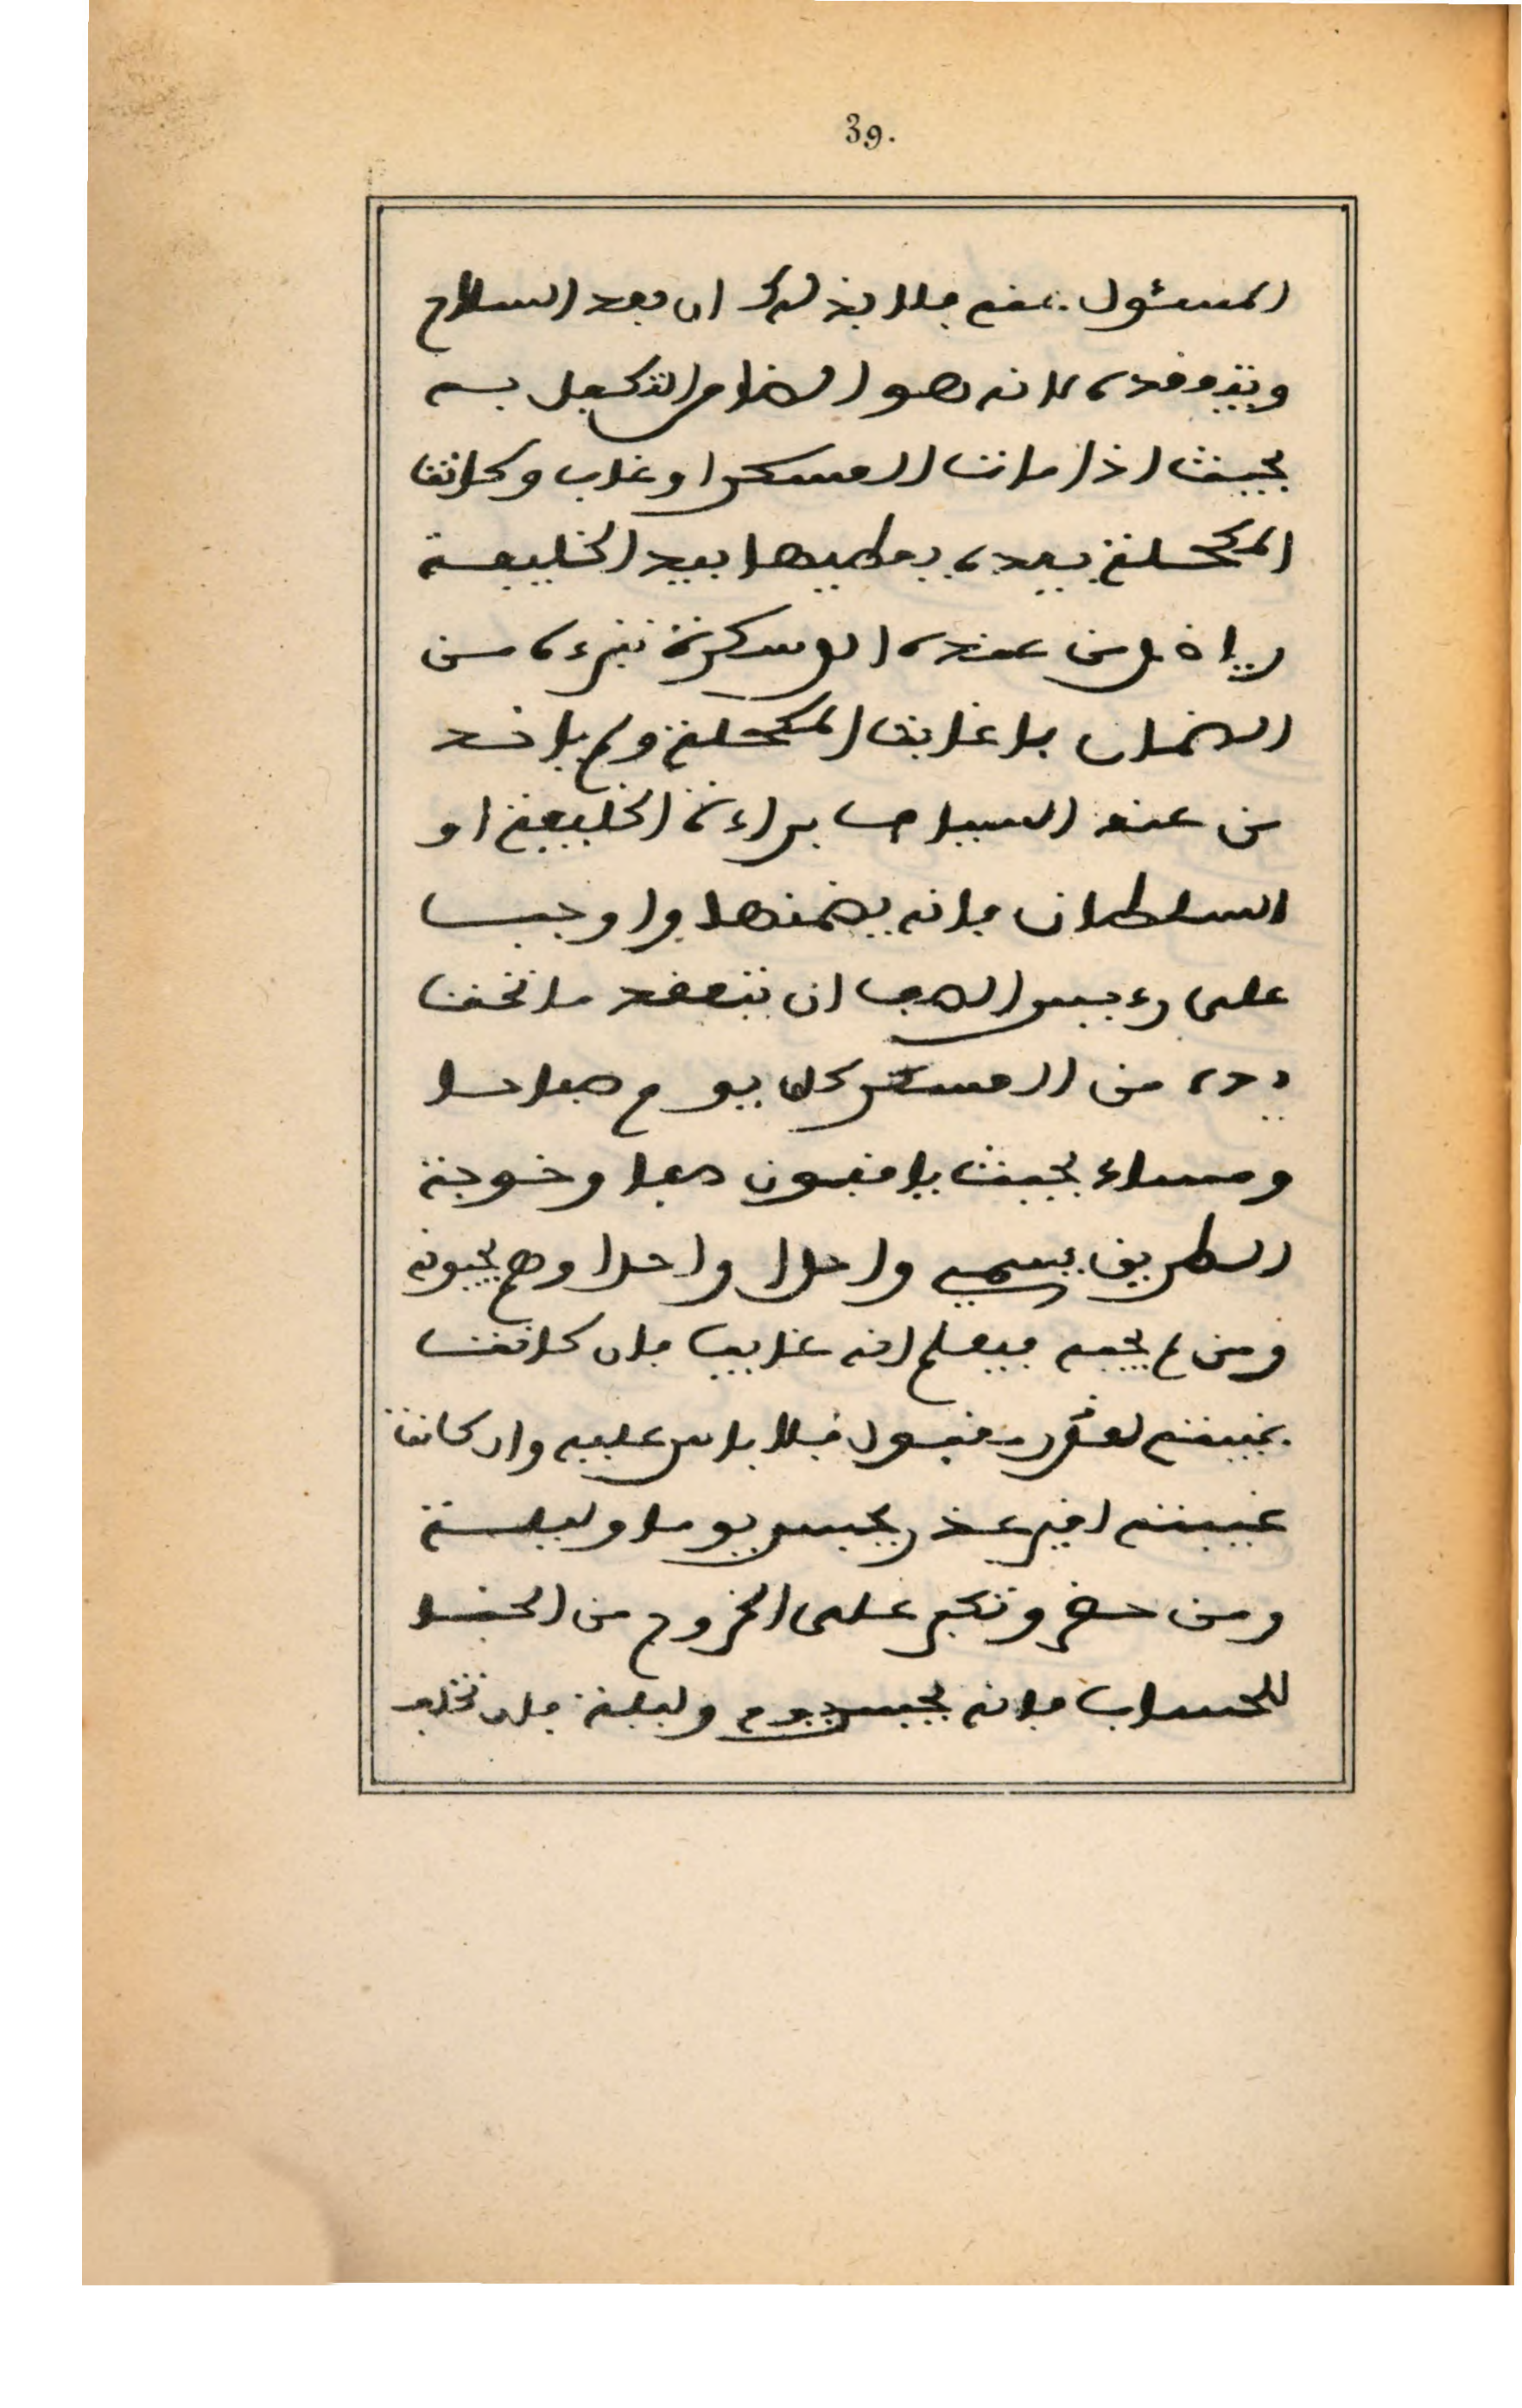 39.
المسئول عنه فلا بد لك ان يعد السلاح
ويتفقده لانه هو الضامن التكفل به
بحيث اذا مات العسكر او غاب وكانت
المكحلة بيده يعطيها بيد الخليفة
وياخذ من عنده العسكر تبرءه من
الضمان فاذا غابت المكحلة ولم ياخذ
من عند السياف براءة الخليفة او
السلطان فانه يضمنها واوجب
على رءيس الصف ان يتفقد ما تحت
يده من العسكر كل يوم صباحا
ومساء بحيث يافيون صفا وخوجة
الطريق يسمي واحدا واحدا وهم يجيبونه
ومن لم يجبه فيعلم انه غايب فان كانت
غيبته لعذر مقبول فلا باس عليه وان كانت
غيبته لغير عذر يحبس يوما وليلة
ومن حضر وتكبر على الخروج من الخباء
للحساب فانه يحبس يوم وليلة فان تخلف